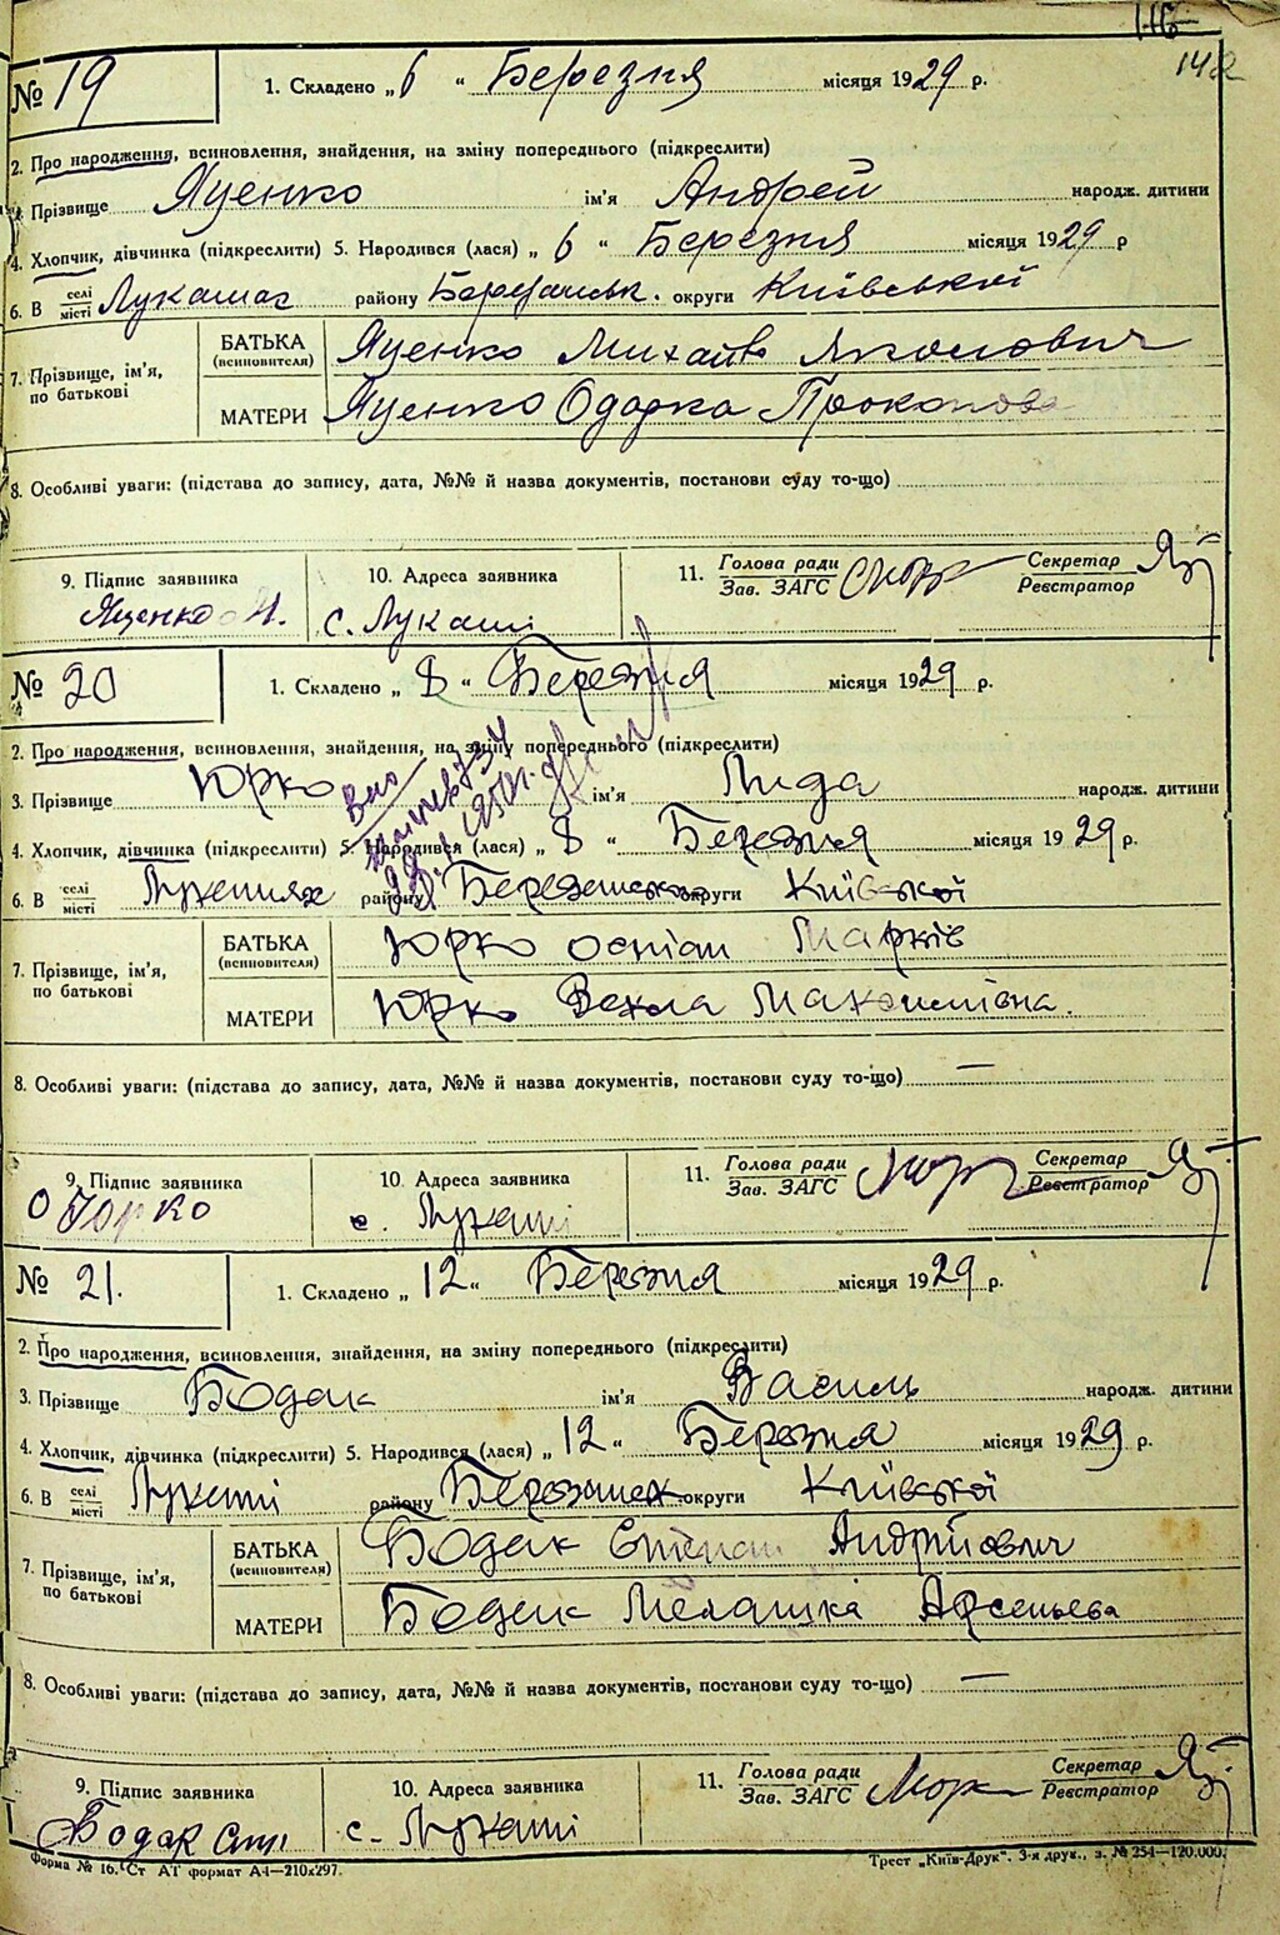 116
142
№ 19 1. Складено „ 6 “ Березня місяця 1929 р.
2. Про народження, всиновлення, знайдення, на зміну попереднього (підкреслити)
Прізвище Яценко ім'я Андрей народж. дитини
4. Хлопчик, дівчинка (підкреслити) 5. Народився (лася) „ 6 “ Березня місяця 1929 р
6. В селі місті Лукашах району Березанськ. округи Київської
7. Прізвище, ім'я, по батькові
БАТЬКА (всиновителя) Яценко Михайло Якомович
МАТЕРИ Яценко Одарка Прокопова
8. Особливі уваги: (підстава до запису, дата, №№ й назва документів, постанови суду то-що)
9. Підпис заявника 10. Адреса заявника 11. Голова ради Зав. ЗАГС Секретар Реєстратор
Яценко с. Лукаші
№ 20 1. Складено „ 8 “ Березня місяця 1929 р.
2. Про народження, всиновлення, знайдення, на зміну попереднього (підкреслити)
3. Прізвище Юрко ім'я Лида народж. дитини
4. Хлопчик, дівчинка (підкреслити) 5. Народився (лася) „ 8 “ Березня місяця 1929 р.
6. В селі місті Лукашах району Березанськ округи Київської
7. Прізвище, ім'я, по батькові
БАТЬКА (всиновителя) Юрко Осипи Марків
МАТЕРИ Юрко Векла Максимівна.
8. Особливі уваги: (підстава до запису, дата, №№ й назва документів, постанови суду то-що) —
9. Підпис заявника 10. Адреса заявника 11. Голова ради Зав. ЗАГС Секретар Реєстратор
О Юрко с. Лукаші
№ 21. 1. Складено „ 12 “ Березня місяця 1929 р.
2. Про народження, всиновлення, знайдення, на зміну попереднього (підкреслити)
3. Прізвище Бодак ім'я Василь народж. дитини
4. Хлопчик, дівчинка (підкреслити) 5. Народився (лася) „ 12 “ Березня місяця 1929 р.
6. В селі місті Лукаші району Березанськ округи Київської
7. Прізвище, ім'я, по батькові
БАТЬКА (всиновителя) Бодак Степан Андрійович
МАТЕРИ Бодак Мелашка Арсеньева
8. Особливі уваги: (підстава до запису, дата, №№ й назва документів, постанови суду то-що) —
9. Підпис заявника 10. Адреса заявника 11. Голова ради Зав. ЗАГС Секретар Реєстратор
Бодак Сте с. Лукаші
Форма № 16. Ст АТ формат А4—210x297. Трест „Київ-Друк“. 3-я друк., з. № 254—120.000.